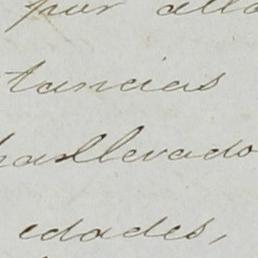 por alla
tancias
hallevado
edades,